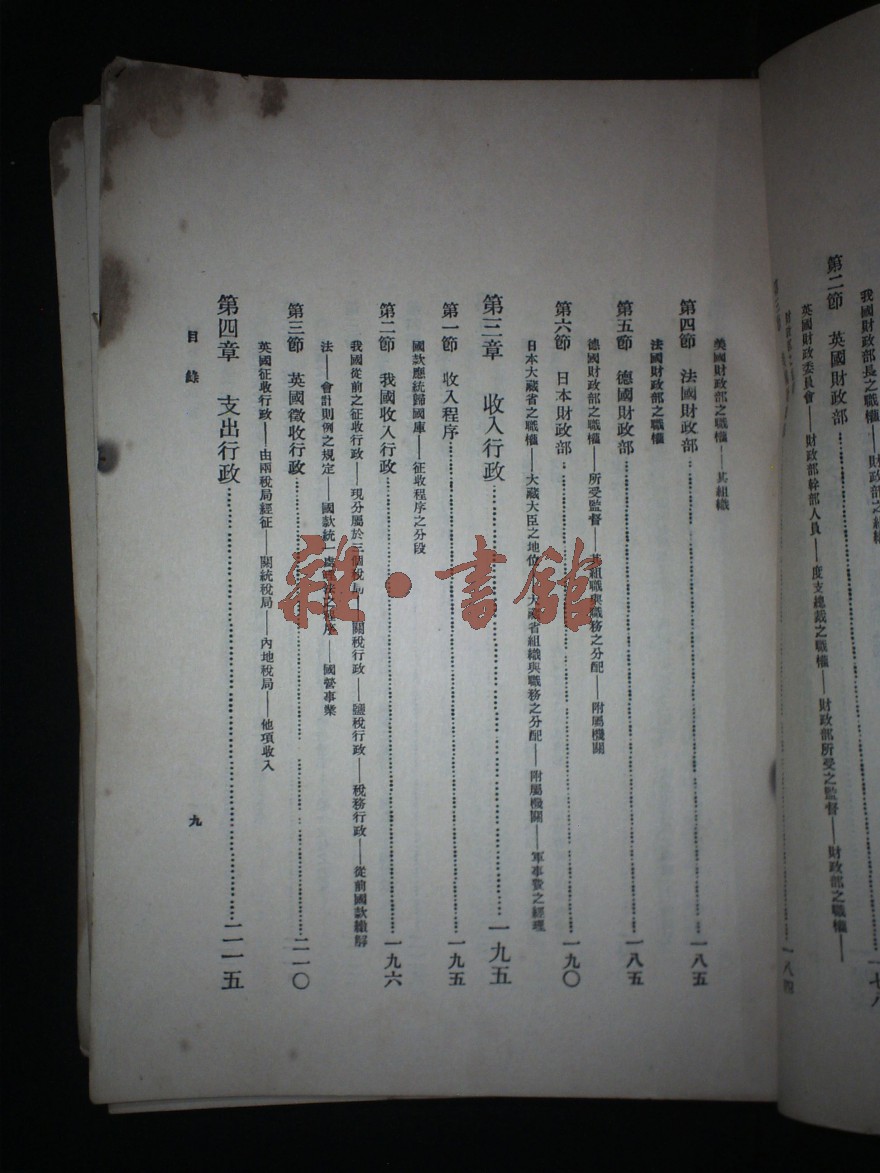 我國財政部長之職權——財政部之組織
第二節　英國財政部
英國財政委員會——財政部幹部人員——度支總裁之職權——財政部所受之監督——財政部之職權——
一八四
美國財政部之職權——其組織
第四節　法國財政部 一八五
法國財政部之職權
第五節　德國財政部 一八五
德國財政部之職權——所受監督——其組織與職務之分配——附屬機關
第六節　日本財政部 一九〇
日本大藏省之職權——大藏大臣之地位——大藏省組織與職務之分配——附屬機關——軍事費之經理
第三章　收入行政 一九五
第一節　收入程序 一九五
國款應統歸國庫——征收程序之分段
第二節　我國收入行政 一九六
我國從前之征收行政——現分屬於三個稅局——關稅行政——鹽稅行政——稅務行政——從前國款繳解
法——會計則例之規定——國款統一處理法之程序——國營事業
第三節　英國徵收行政 二一〇
英國征收行政——由兩稅局經征——關統稅局——內地稅局——他項收入
第四章　支出行政 二一五
目錄
九
雜·書館